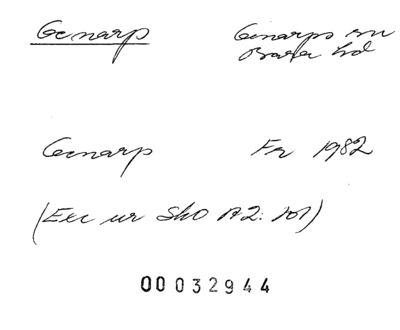 Genarp Genarps sn
Bara hd
Genarp Fr 1982
(Exc ur SkO A2: 101)
00032944